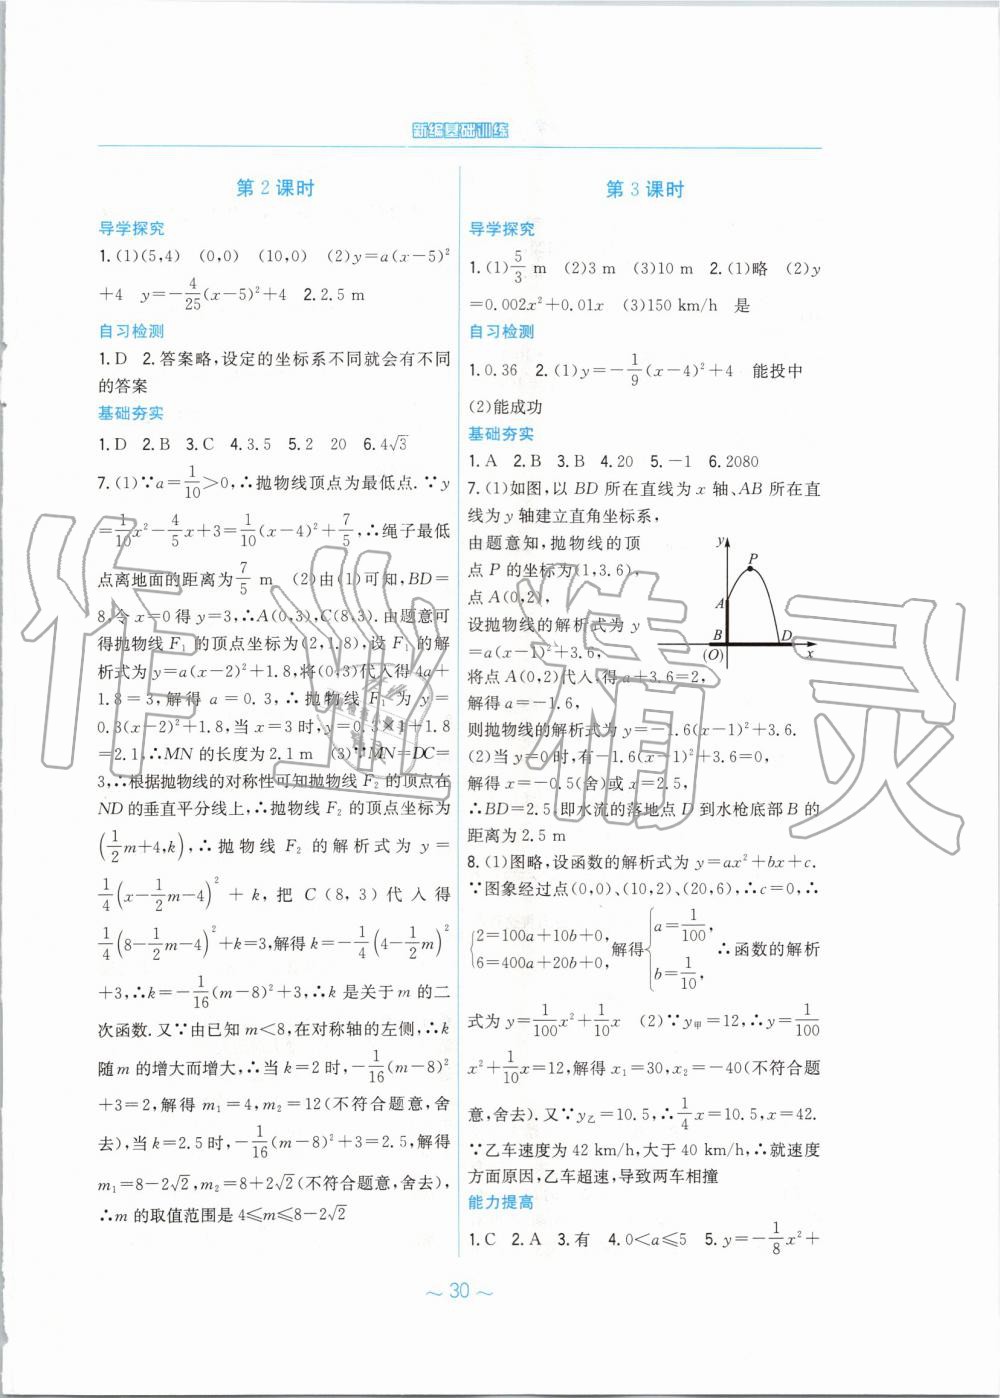 新编基础训练
第2课时
导学探究
1.(1)(5,4) (0,0) (10,0) (2)y=a(x-5)²
+4 y=-4/25(x-5)²+4 2.2.5 m
自习检测
1.D 2.答案略,设定的坐标系不同就会有不同
的答案
基础夯实
1.D 2.B 3.C 4.3.5 5.2 20 6.4√3
7.(1)∵a=1/10>0,∴抛物线顶点为最低点.∵y
=1/10x²-4/5x+3=1/10(x-4)²+7/5,∴绳子最低
点离地面的距离为7/5 m (2)由(1)可知,BD=
8,令x=0得y=3,∴A(0,3),C(8,3).由题意可
得抛物线F₁的顶点坐标为(2,1.8),设F₁的解
析式为y=a(x-2)²+1.8,将(0,3)代入得4a+
1.8=3,解得a=0.3,∴抛物线F₁为y=
0.3(x-2)²+1.8,当x=3时,y=0.3×1+1.8
=2.1,∴MN的长度为2.1 m (3)∵MN=DC=
3,∴根据抛物线的对称性可知抛物线F₂的顶点在
ND的垂直平分线上,∴抛物线F₂的顶点坐标为
(1/2m+4,k),∴抛物线F₂的解析式为y=
1/4(x-1/2m-4)²+k,把C(8,3)代入得
1/4(8-1/2m-4)²+k=3,解得k=-1/4(4-1/2m)²
+3,∴k=-1/16(m-8)²+3,∴k是关于m的二
次函数.又∵由已知m<8,在对称轴的左侧,∴k
随m的增大而增大,∴当k=2时,-1/16(m-8)²
+3=2,解得m₁=4,m₂=12(不符合题意,舍
去),当k=2.5时,-1/16(m-8)²+3=2.5,解得
m₁=8-2√2,m₂=8+2√2(不符合题意,舍去),
∴m的取值范围是4≤m≤8-2√2
第3课时
导学探究
1.(1)5/3 m (2)3 m (3)10 m 2.(1)略 (2)y
=0.002x²+0.01x (3)150 km/h 是
自习检测
1.0.36 2.(1)y=-1/9(x-4)²+4 能投中
(2)能成功
基础夯实
1.A 2.B 3.B 4.20 5.-1 6.2080
7.(1)如图,以BD所在直线为x轴、AB所在直
线为y轴建立直角坐标系,
由题意知,抛物线的顶
点P的坐标为(1,3.6),
点A(0,2),
设抛物线的解析式为y
=a(x-1)²+3.6,
将点A(0,2)代入,得a+3.6=2,
解得a=-1.6,
则抛物线的解析式为y=-1.6(x-1)²+3.6.
y
P
A
B
D
(O)
x
(2)当y=0时,有-1.6(x-1)²+3.6=0,
解得x=-0.5(舍)或x=2.5,
∴BD=2.5,即水流的落地点D到水枪底部B的
距离为2.5 m
8.(1)图略,设函数的解析式为y=ax²+bx+c.
∵图象经过点(0,0)、(10,2)、(20,6),∴c=0,∴
{2=100a+10b+0, 6=400a+20b+0, 解得{a=1/100, b=1/10, ∴函数的解析
式为y=1/100x²+1/10x (2)∵y甲=12,∴y=1/100
x²+1/10x=12,解得x₁=30,x₂=-40(不符合题
意,舍去).又∵y乙=10.5,∴1/4x=10.5,x=42.
∵乙车速度为42 km/h,大于40 km/h,∴就速度
方面原因,乙车超速,导致两车相撞
能力提高
1.C 2.A 3.有 4.0<a≤5 5.y=-1/8x²+
~ 30 ~
作业精灵